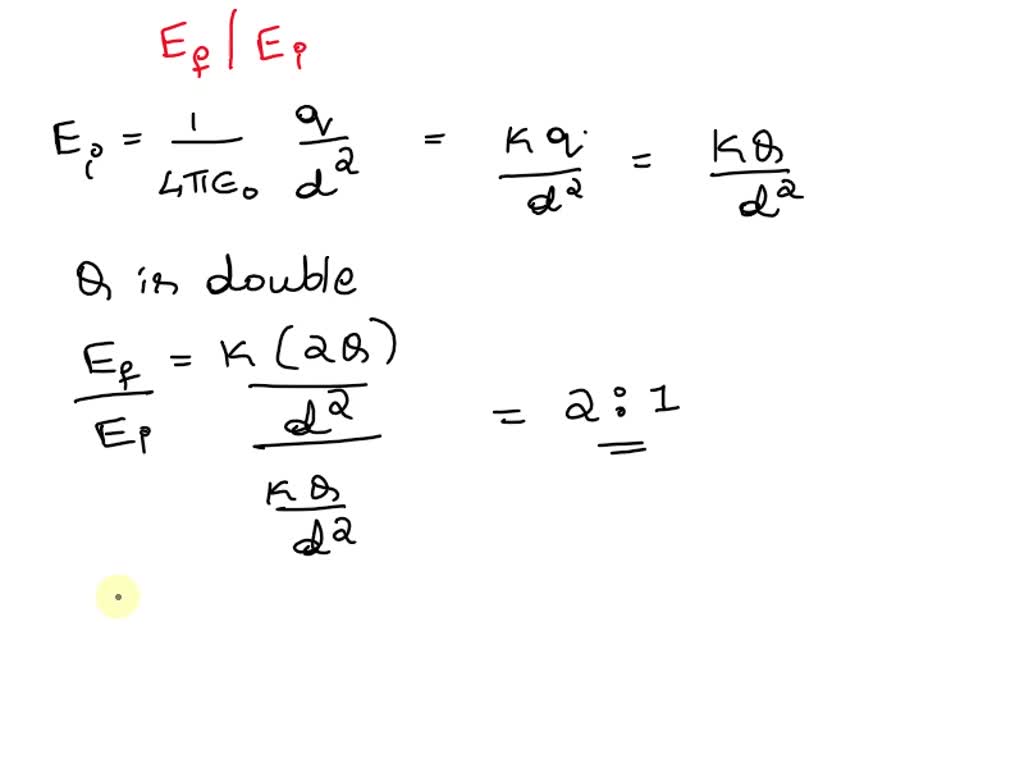 E_f / E_i
E_i = 1/(4πϵ₀) q/d² = Kq/d² = KQ/d²
Q is double
E_f/E_i = (K(2Q)/d²)/(KQ/d²) = 2:1